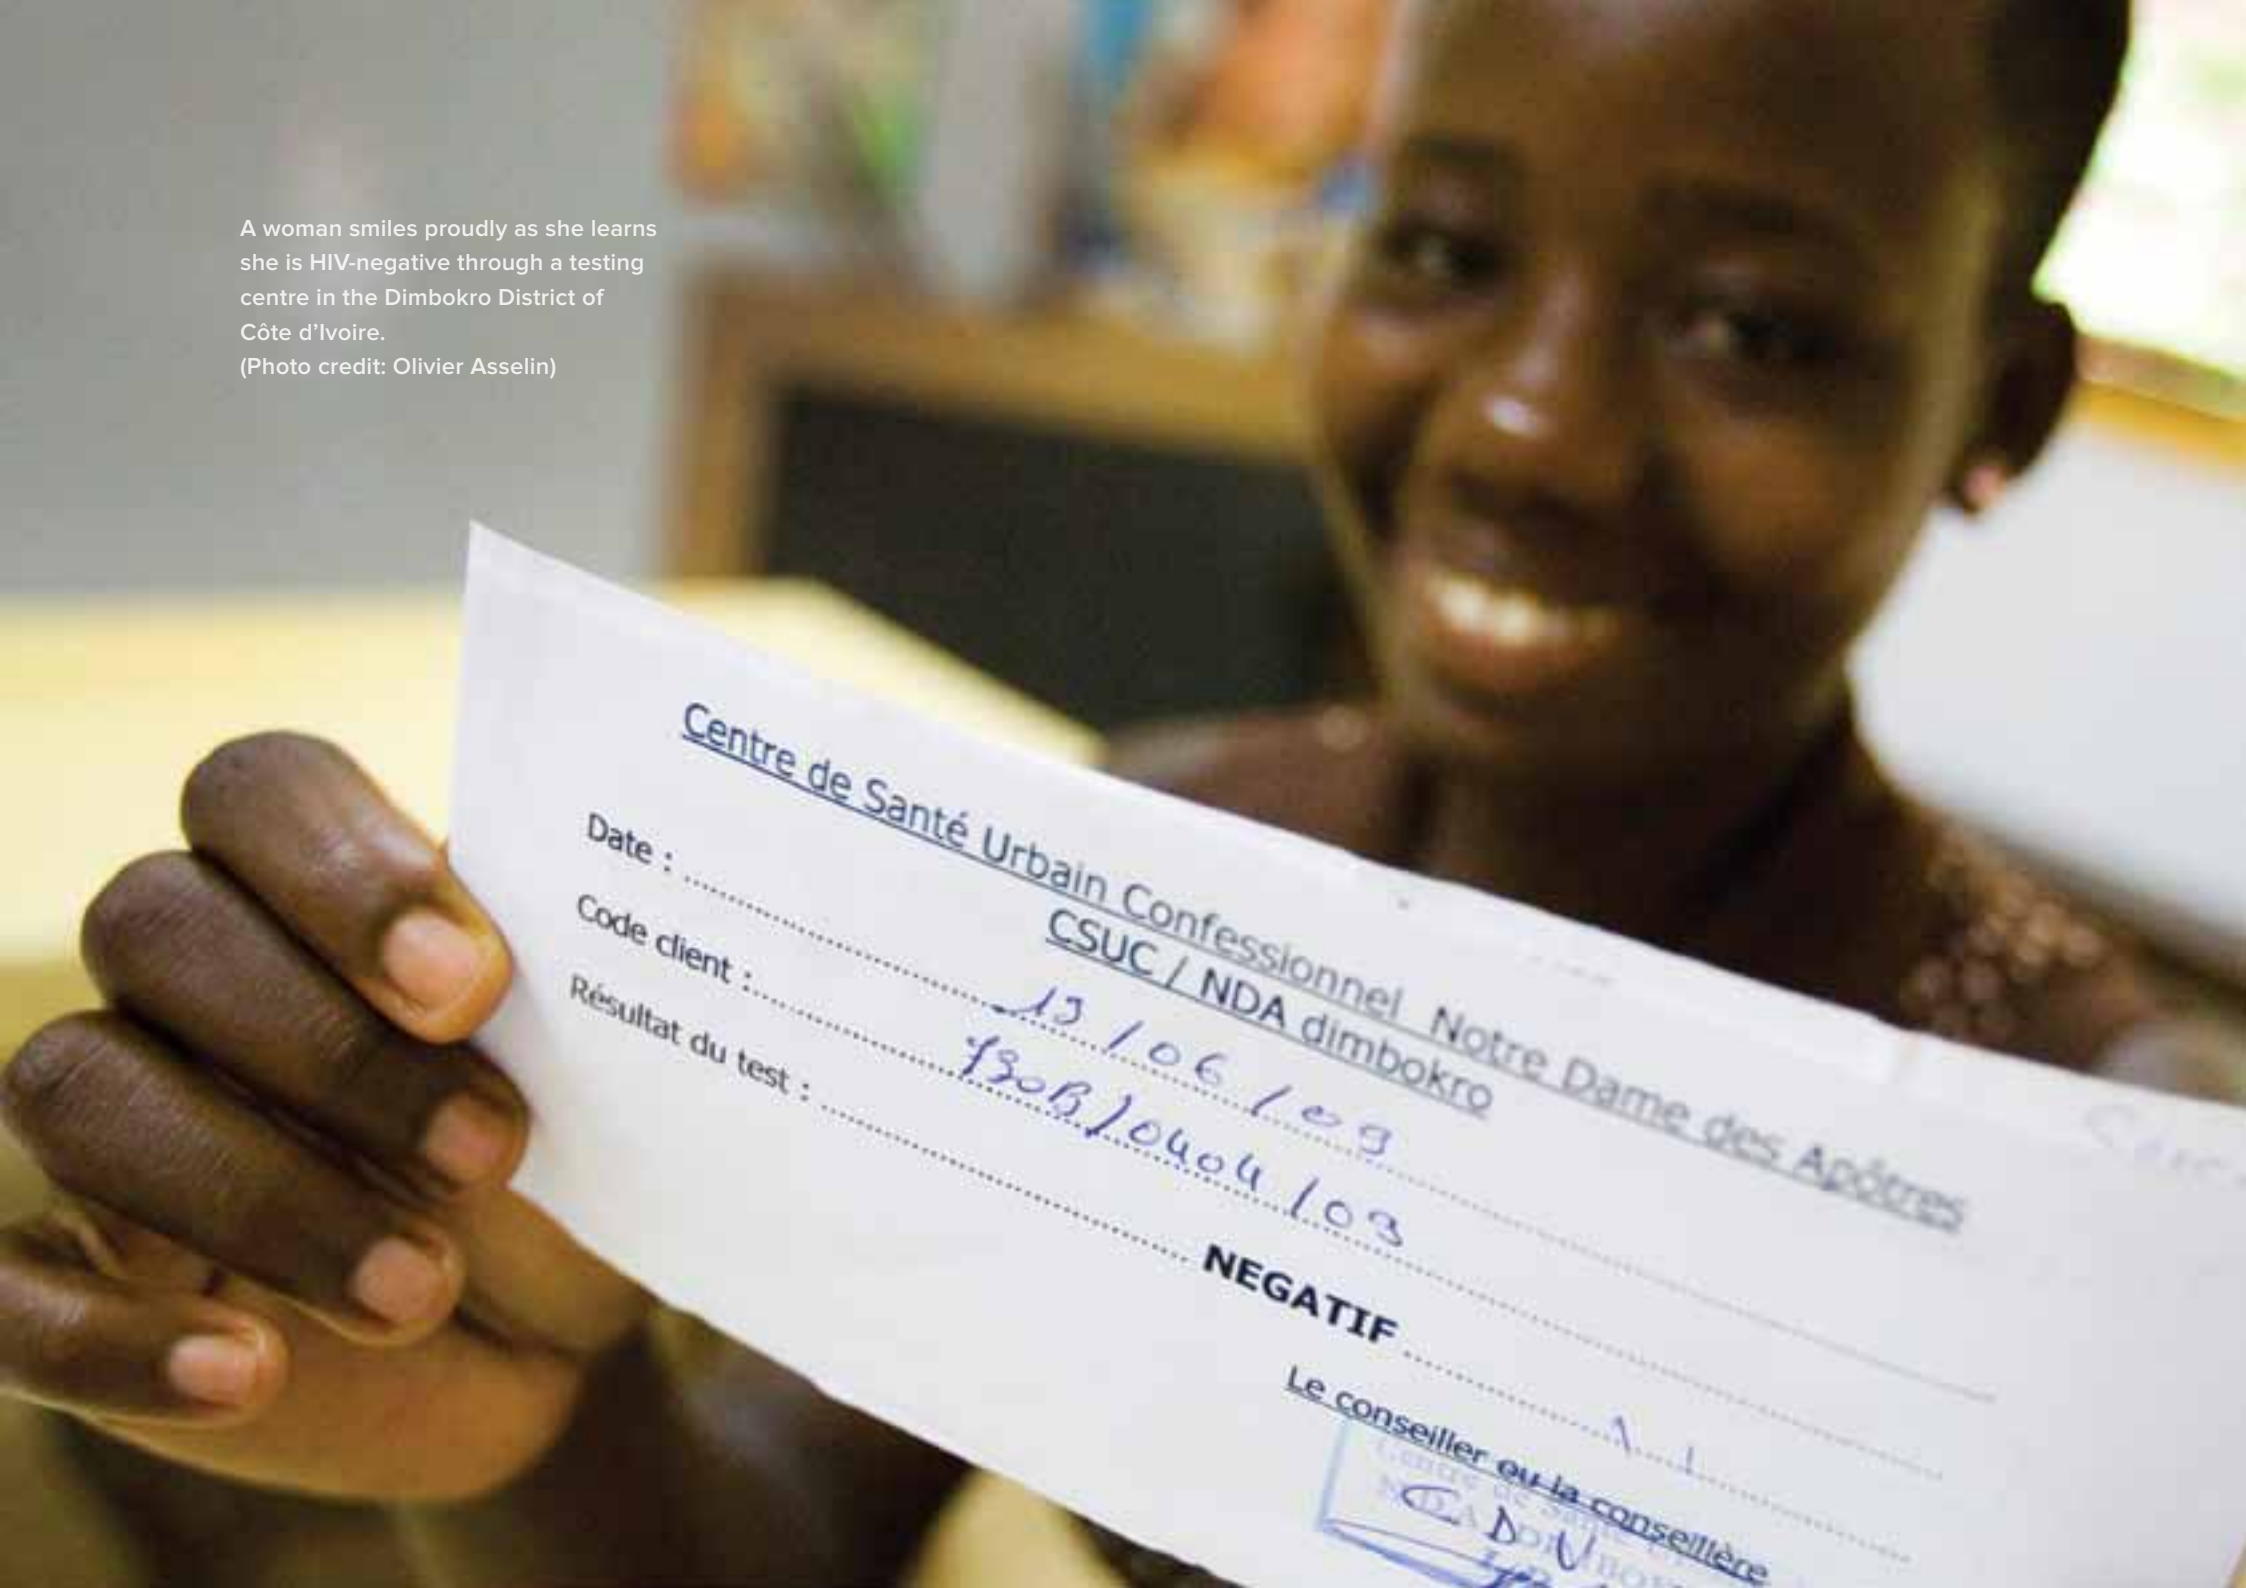 A woman smiles proudly as she learns
she is HIV-negative through a testing
centre in the Dimbokro District of
Côte d’Ivoire.
(Photo credit: Olivier Asselin)
Centre de Santé Urbain Confessionnel Notre Dame des Apôtres
CSUC / NDA dimbokro
Date : 19/06/09
Code client : /0404/09
Résultat du test : NEGATIF
Le conseiller ou la conseillère